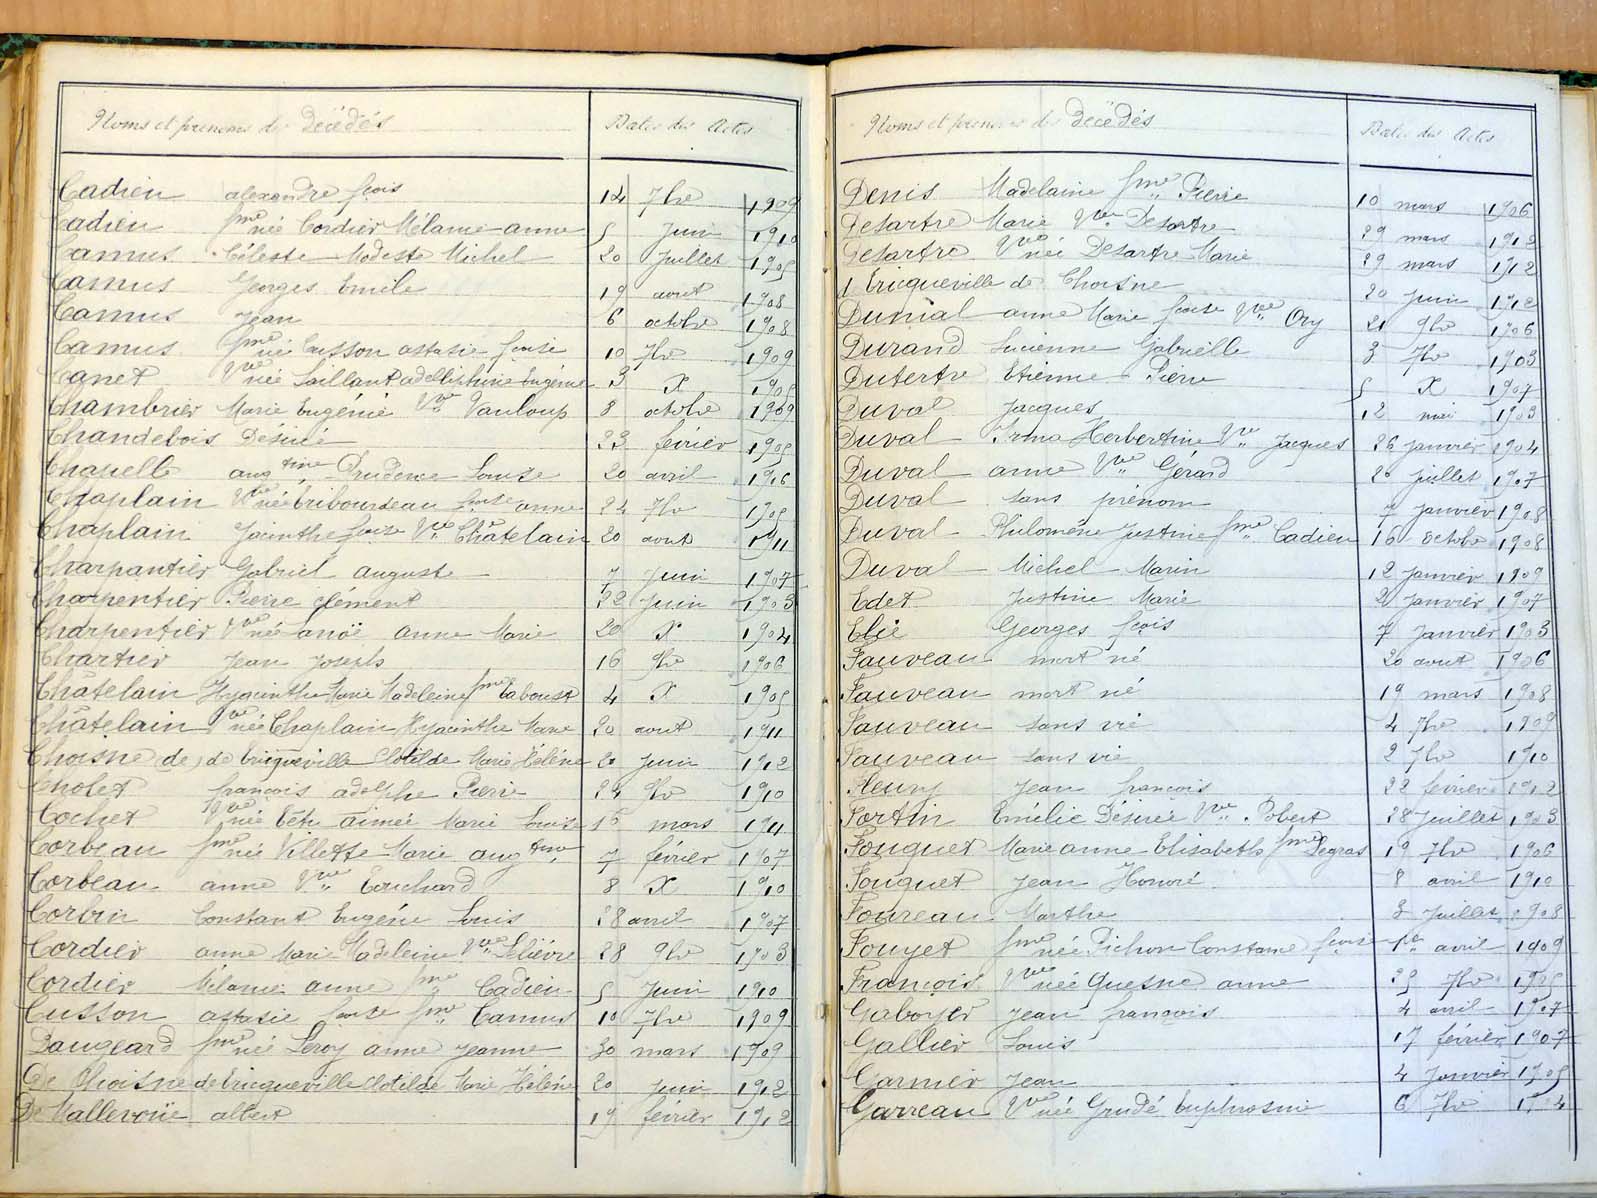 Noms et prénoms des Décédés Dates des Actes
Cadieu alexandre fçois 14 7bre 1909
Cadieu fme née Cordier Mélanie anne 5 Juin 1910
Camus Céleste Modeste Michel 20 Juillet 1905
Camus Georges Emile 19 aout 1908
Camus Jean 6 octobre 1908
Camus fme née Cusson astasie fçoise 10 7bre 1909
Canet Vve née Saillant adelle 3 X 1905
Chambrier Marie Eugénie Vve Vauloup 8 octobre 1909
Chandebois Désiré 23 février 1905
Chapelle augtine Prudence Louise 20 avril 1906
Chaplain Vve née fçoise anne 24 7bre 1905
Chaplain Jacinthe fçoise Vve Châtelain 20 aout 1911
Charpentier Gabriel auguste 7 Juin 1907
Charpentier Pierre clément 22 Juin 1903
Charpentier Vve née anne Marie 20 X 1904
Chartier Jean Joseph 16 9bre 1906
Châtelain Hyacinthe Marie Madeleine fme Taboust 4 X 1905
Châtelain Vve née Chaplain Hyacinthe Marie 20 aout 1911
Choisne (de) de bricqueville Clotilde Marie Hélène 20 Juin 1912
Cholet françois adolphe Pierre 24 9bre 1910
Cochet Vve née Aimée Marie Louise 16 mars 1911
Corbeau fme née Villette Marie augtine 7 février 1907
Corbeau anne Vve Touchard 8 X 1910
Corbin Constant Eugène Louis 28 avril 1907
Cordier anne Marie Madeleine Vve Lelièvre 28 9bre 1903
Cordier Mélanie anne fme Cadieu 5 Juin 1910
Cusson astasie fçoise fme Camus 10 7bre 1909
Daugeard fme née Leroy anne Jeanne 30 mars 1909
De Choisne de bricqueville Clotilde Marie Hélène 20 Juin 1912
De Mallevoüe albert 19 février 1912
Noms et prénoms des Décédés Dates des Actes
Denis Madelaine fme Pierre 10 mars 1906
Desartre Marie Vve Desartre 29 mars 1912
Desartre Vve née Desartre Marie 29 mars 1912
d'Ericqueville de Choisne 20 Juin 1912
anne Marie fçoise Vve Ory 21 9bre 1906
Durand Lucienne Gabrielle 3 7bre 1903
Dutertre Etienne Pierre 5 X 1907
Duval Jacques 12 mai 1903
Duval Irma Herbertine Vve Jacques 26 janvier 1904
Duval anne Vve Gérard 20 juillet 1907
Duval sans prénom 7 janvier 1908
Duval Philomène Justine fme Cadieu 16 octobre 1908
Duval Michel Marin 12 janvier 1909
Edet Justine Marie 2 janvier 1907
Elie Georges fçois 7 janvier 1903
Fauveau mort né 20 aout 1906
Fauveau mort né 19 mars 1908
Fauveau sans vie 4 7bre 1909
Fauveau sans vie 2 7bre 1910
Fleury Jean françois 22 février 1912
Fortin Emélie Désirée Vve Pobert 28 Juillet 1903
Fouquet Marie anne Elisabeth fme Legras 19 7bre 1906
Fouquet Jean Honoré 8 avril 1910
Foureau Marthe 3 Juillet 1908
Fouyet fme née Pichon Constance fçoise 1er avril 1909
François Vve née Quesne anne 25 7bre 1905
Gaboyer Jean françois 4 avril 1907
Gallier Louis 17 février 1907
Garnier Jean 4 Janvier 1905
Garreau Vve née Grudé Euphrosine 6 7bre